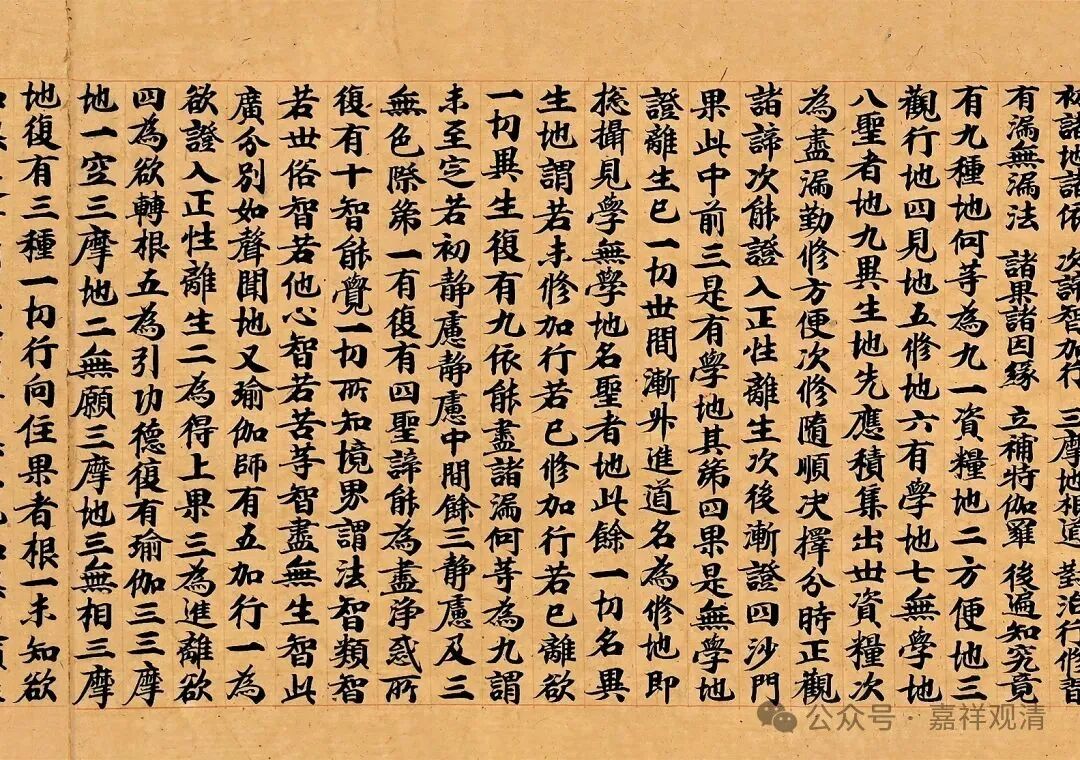 初諸地諸依 次諦智加行 三摩地根道 對治行修習
有漏無漏法 諸果諸因緣 立補特伽羅 後遍知究竟
有九種地何等為九一資糧地二方便地三
觀行地四見地五修地六有學地七無學地
八聖者地九異生地先應積集出世資糧次
為盡漏勤修方便次修随順决擇分時正觀
諸諦次能證入正性離生次後漸證四沙門
果此中前三是有學地其第四果是無學地
證離生已一切世間漸升進道名為修地即
揔攝見學無學地名聖者地此餘一切名異
生地謂若未修加行若已修加行若已離欲
一切異生復有九依能盡諸漏何等為九謂
未至定若初静慮静慮中間餘三静慮及三
無色際第一有復有四聖諦能為盡淨惑所
復有十智能覺一切所知境界謂法智類智
若世俗智若他心智若苦等智盡無生智此
廣分別如聲聞地又瑜伽師有五加行一為
欲證入正性離生二為得上果三為進離欲
四為欲轉根五為引功德復有瑜伽三三摩
地一空三摩地二無願三摩地三無相三摩
地復有三種一切行向住果者根一未知欲
公众号·嘉祥观清